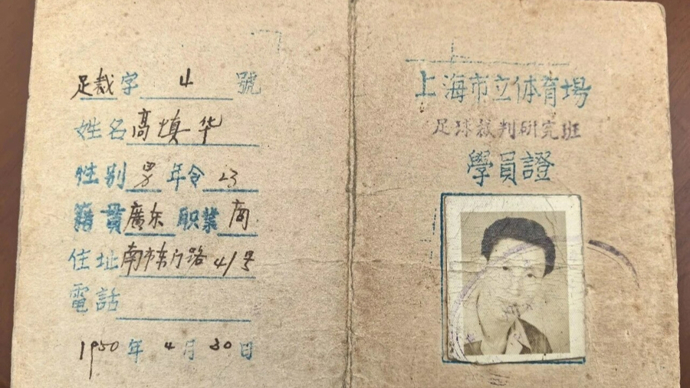 足裁字 4 號
姓名 高填华
性别 男 年令 23
籍貫 廣东 职業 商
住址 南市东门路41号
電話
1950年4月30日
上海市立体育場
足球裁判研究班
學員證